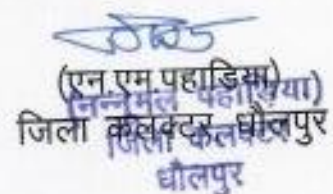 (एन.एम.पहाड़िया)
निन्नेमल पहाड़िया)
जिला कलक्टर, धौलपुर
जिला कलक्टर
धौलपुर